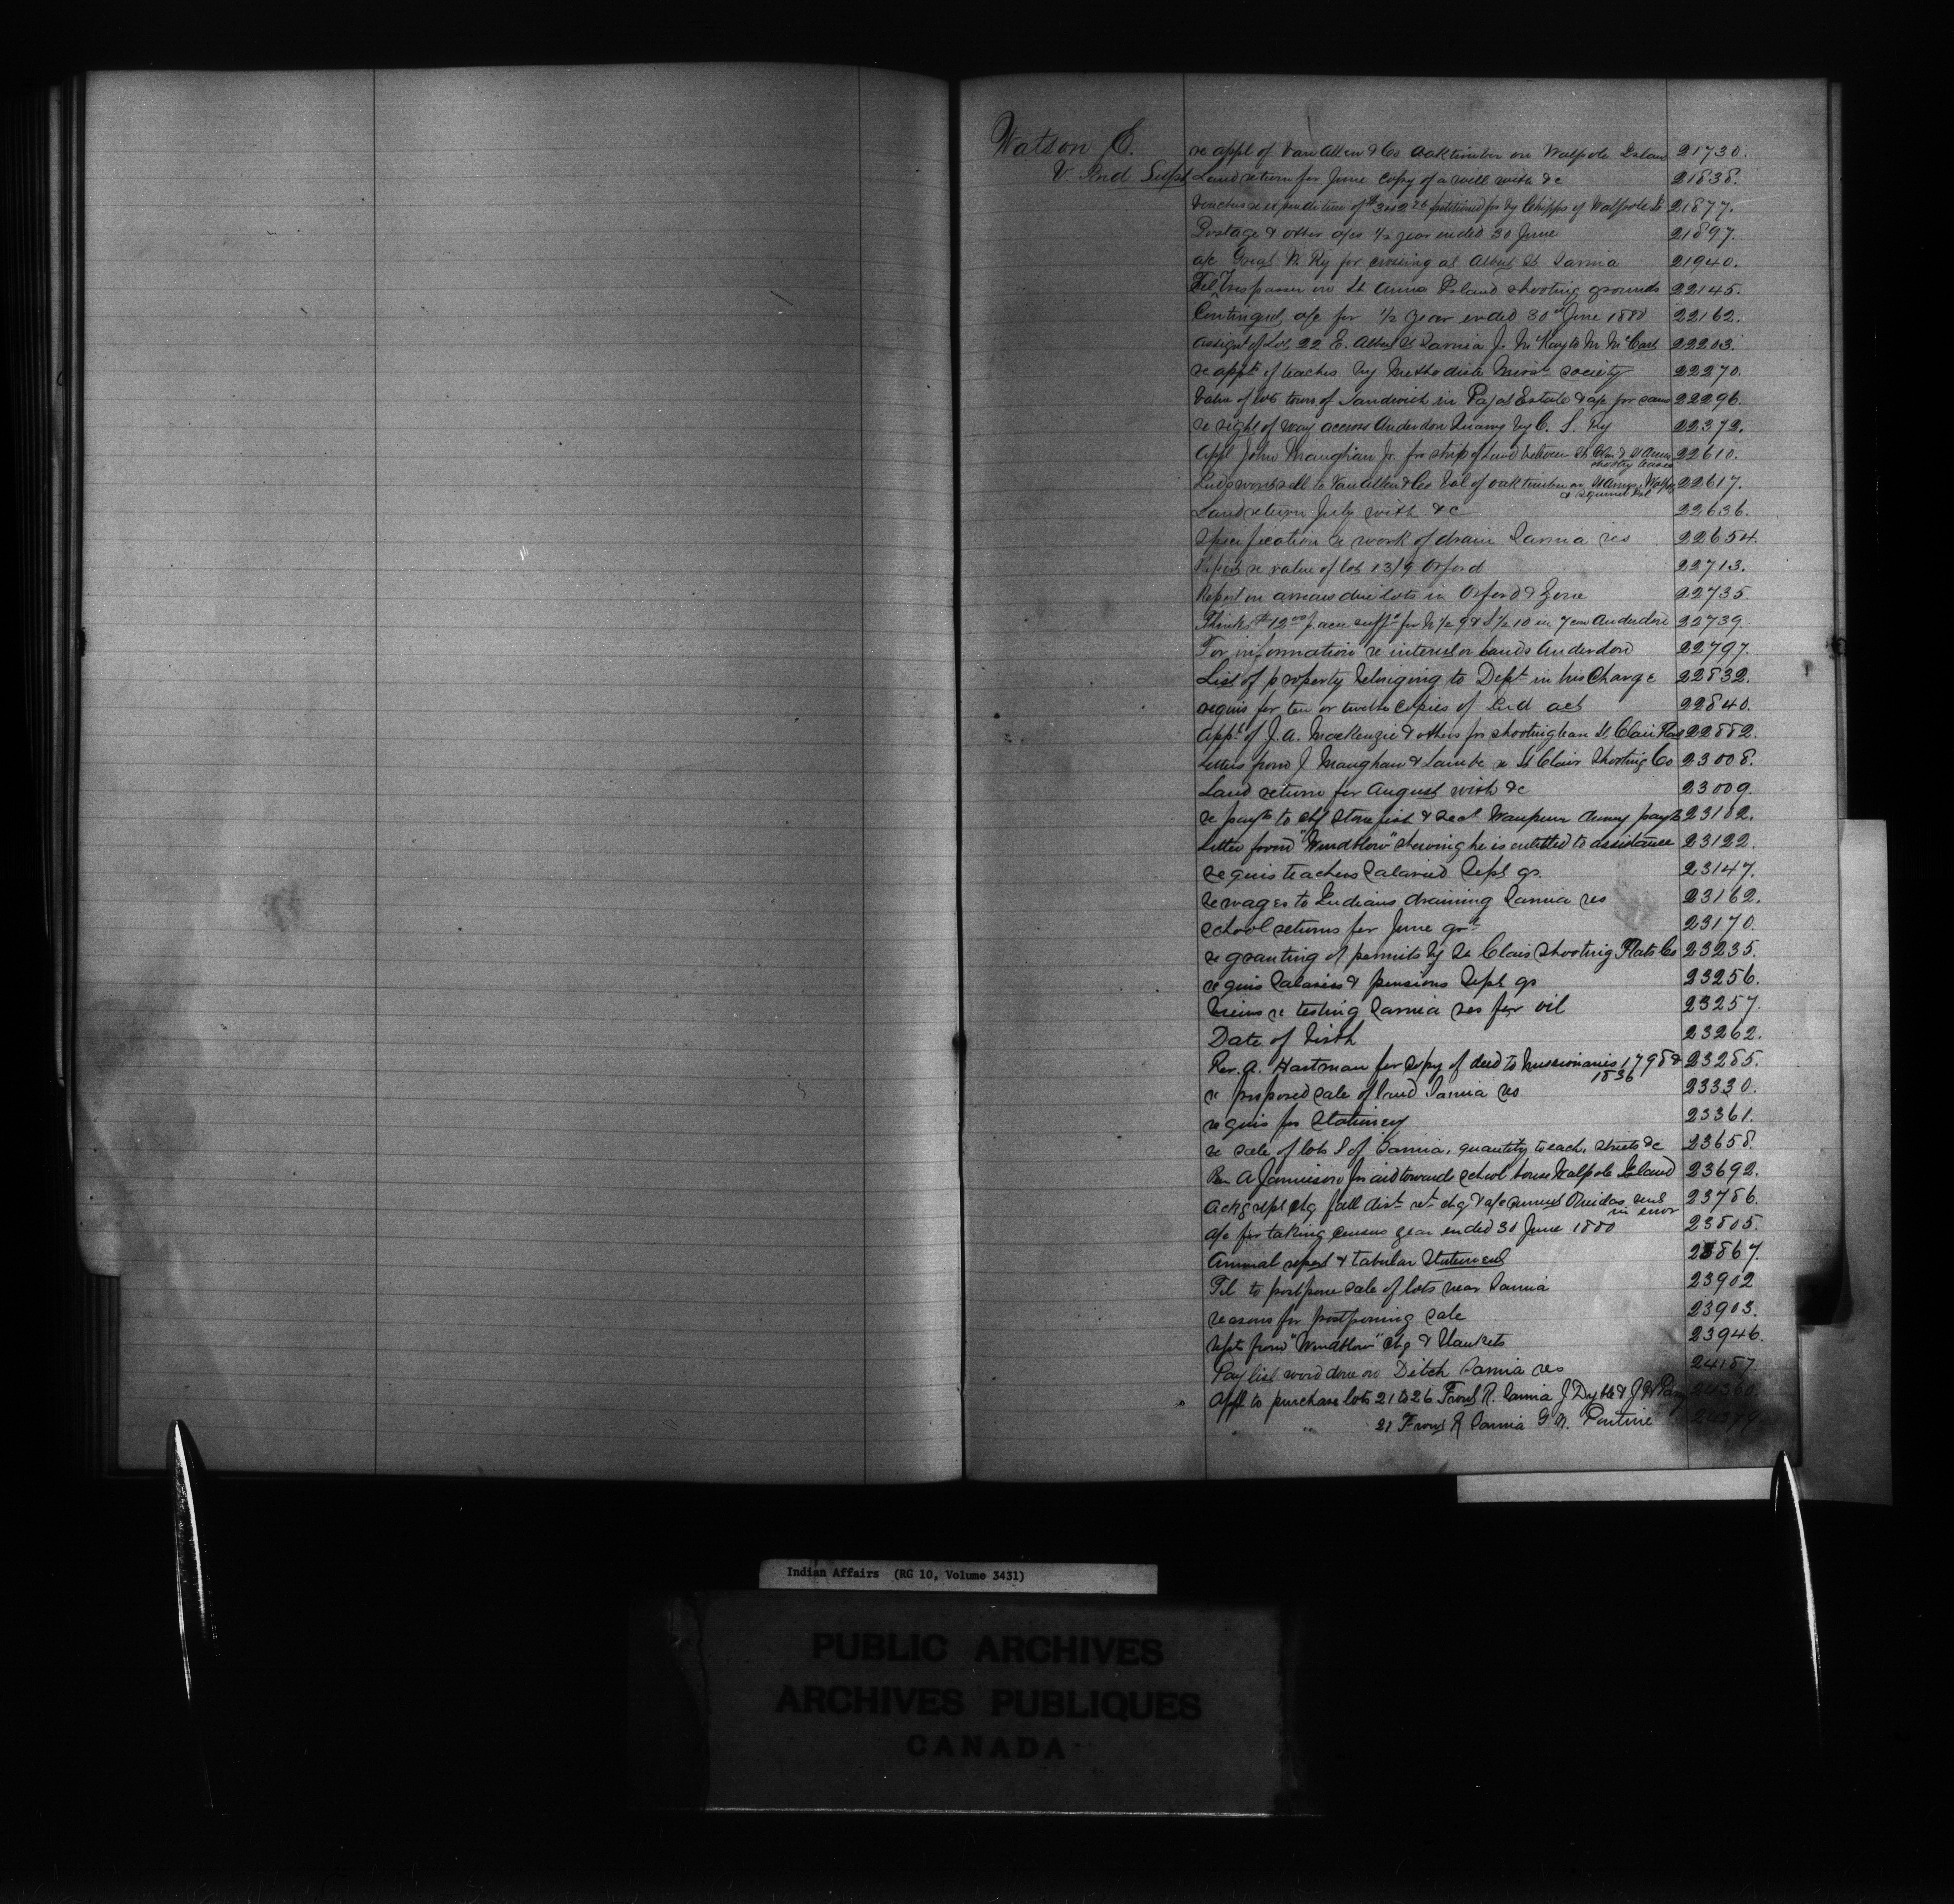 Watson E.
V. Ind Supt
re appl of Van Allen & Co oak timber on Walpole Island 21730.
Land return for June copy of a will with &c 21838.
Vouchers re expenditure of petitioned for by Chipps of Walpole Is 21877.
Postage & other a/cs ½ year ended 30 June 21897.
a/c Great W. Ry for crossing at Albert St Sarnia 21940.
Tel Trespasser on St Anns Island shooting grounds 22145.
Contingent a/c for ½ year ended 30th June 1880 22162.
Assignt of Lot 22 E. Albert St Sarnia J. McKay to M. McCart 22203.
re appt of teacher by Methodist Missy society 22270.
Value of lots town of Sandwich in Estate & a/c for same 22296.
re right of way accross Anderdon Quarry by C. S. Ry 22372.
Appl John Maughan Jr. for strip of land between St Clair & St Anns 22610.
shooting leases
Inds wont sell to Van Allen & Co bal of oak timber on St Anns, Walpole 22617.
& squirrel Isl
Land return July with &c 22636.
Specification re work of drain Sarnia res 22654.
Report re value of lot 13/9 Orford 22713.
Report on arrears due lots in Orford & Zone 22735.
Thinks $12.00 p acre sufft for N ½ 9 & S ½ 10 in 7 con Anderdon 22739
For information re interest on lands Anderdon 22797.
List of property belonging to Dept in his Charge 22832.
requis for ten or twelve copies of Ind act 22840.
Applt of J. A. MacKenzie & others for shooting lease St Clair Flats 22882.
Letters from J Maughan & Lambe re St Clair Shooting Co 23008.
Land return for August with &c 23009.
re payts to chf Stone fish & Sect Waupeun Annuy payts 23102.
Letter from "Windblow" shewing he is entitled to assistance 23122.
requis teachers salaries Sept qr. 23147.
re wages to Indians draining Sarnia res 23162.
school returns for June qr 23170.
re granting of permits by St Clair Shooting Flats Co 23235.
requis Salaries & pensions Sept qr 23256.
Views re testing Sarnia res for oil 23257.
Date of birth 23262.
Rev. A. Hartman for copy of deed to missionaries 1798 & 23285.
1836
re proposed sale of land Sarnia res 23330.
requis for Stationery 23361.
re sale of lots S of Sarnia, quantity to each, streets &c 23658.
Rev A Jamieson for aid towards school house Walpole Island 23692.
Ackg rept chq fall dist ret chq & a/c Oneidas sent 23786.
in error
a/c for taking census year ended 30 June 1880 23805.
Annual report & tabular Statement 23867.
Tel to postpone sale of lots near Sarnia 23902
reasons for postponing sale 23903.
from "Windblow" chq & blankets 23946.
Pay list word done on Ditch Sarnia res 24187
Appl to purchase lots 21 to 26 Front R. Sarnia J Dyble & J 24360
" " 21 Front R Sarnia G. A. Pontine
Indian Affairs (RG 10, Volume 3431)
PUBLIC ARCHIVES
ARCHIVES PUBLIQUES
CANADA